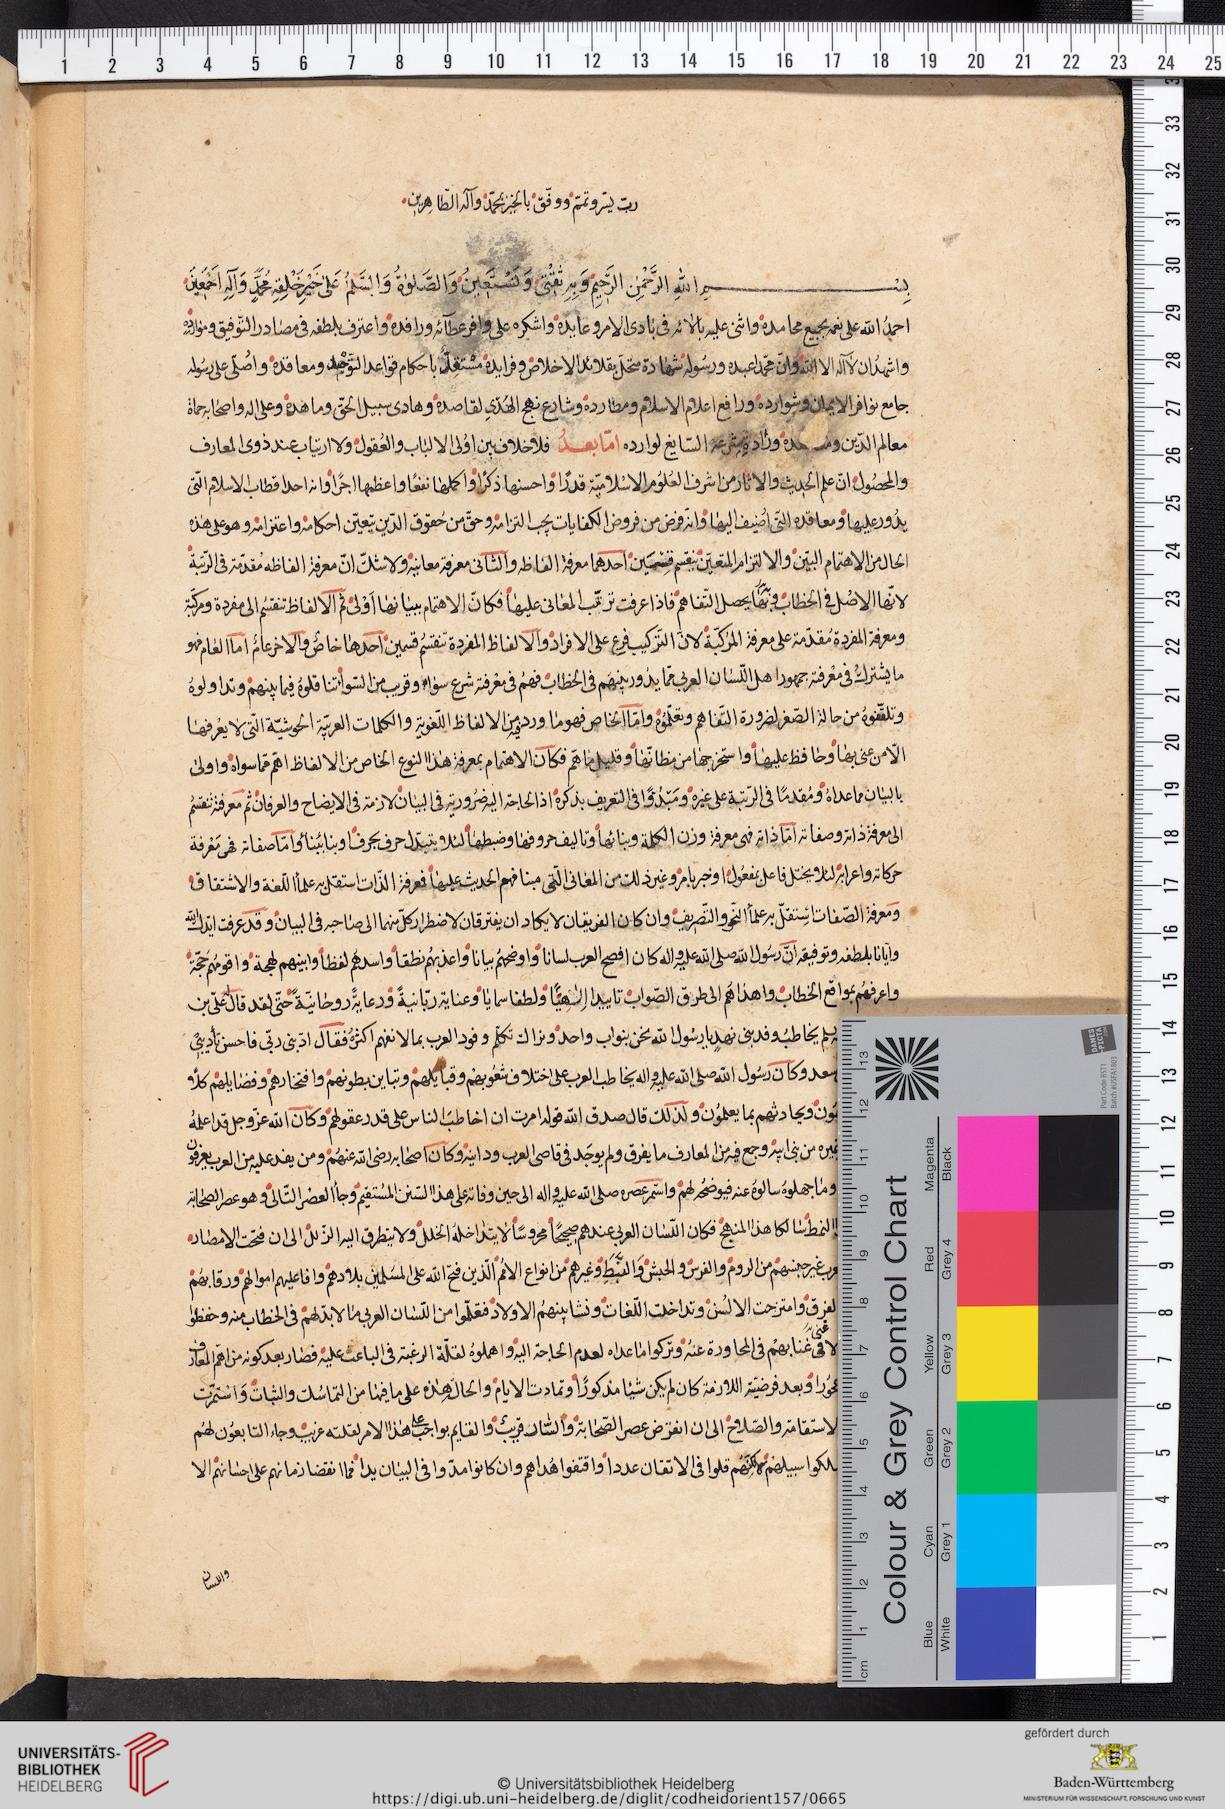 رب يسر وتمم ووفق بالخير بمحمد وآله الطاهرين
بسم الله الرحمن الرحيم وبه ثقتي ونستعين والصلوة والسلم على خير خلقه محمد وآله اجمعين
احمد الله على نعمه بجميع محامده واثني عليه بآلائه في بادئ الامر وعايده واشكره على وافر عطآئه ورافده واعترف بلطفه في مصادر التوفيق وموارده
واشهد ان لا اله الا الله وان محمدا عبده ورسوله شهادة متحل بقلائد الاخلاص وفرايده مستقل باحكام قواعد التوحيد ومعاقده واصلى على رسوله
جامع نوافر الايمان وشوارده ورافع اعلام الاسلام ومطارده وشارع نهج الهدي لقاصده وهادى سبيل الحق وماهده وعلى اله واصحابه حماة
معالم الدين وردة مشرعه السايغ لوارده اما بعد فلا خلاف بين اولى الالباب والعقول ولا ارتياب عند ذوى المعارف
والمحصول ان علم الحديث والاثار من اشرف العلوم الاسلامية قدرا واحسنها ذكرا واكملها نفعا واعظمها اجرا وانه احد اقطاب الاسلام التى
يدور عليها ومعاقده التى اضيف اليها وانه فرض من فروض الكفايات يجب التزامه وحق من حقوق الدين يتعين احكامه واعتزامه وهو على هذه
الحال من الاهتمام البين والالتزام المتعين ينقسم قسمين احدهما معرفة الفاظه والثانى معرفة معانيه ولا شك ان معرفة الفاظه مقدمة فى الرتبة
لانها الاصل في الخطاب وبها يحصل التفاهم فاذا عرفت ترتب المعانى عليها فكان الاهتمام ببيانها اولى ثم الالفاظ تنقسم الى مفردة ومركبة
ومعرفة المفردة مقدمة على معرفة المركبة لان التركيب فرع على الافراد والالفاظ المفردة تنقسم قسمين احدها خاص والاخر عام اما العام فهو
ما يشترك فى معرفته جمهور اهل اللسان العربي مما يدور بينهم فى الخطاب فهم فى معرفته شرع سواء او قريب من السواء تناقلوه فيما بينهم وتداولوه
وتلقفوه من حالة الصغر لضرورة التفاهم وتعلموه واما الخاص فهو ما ورد فيه من الالفاظ اللغوية والكلمات العربية الحوشية التى لا يعرفها
الا من عنى بها وحافظ عليها واستخرجها من مظانها وقليل ما هم فكان الاهتمام بمعرفة هذا النوع الخاص من الالفاظ اهم مما سواه واولى
بالبيان مما عداه ومقدما فى الرتبة على غيره ومبدوا فى التعريف بذكره اذ الحاجة اليه ضرورية فى البيان لازمة فى الايضاح والعرفان ثم معرفته تنقسم
الى معرفة ذاته وصفاته اما ذاته فهى معرفة وزن الكلمة وبنائها وتاليف حروفها وضبطها لئلا يتبدل حرف بحرف او بناء ببناء واما صفاته فهى معرفة
حركاته واعرابه لئلا يختل فاعل بمفعول او خبر بامر وغير ذلك من المعانى التى مبنا فهم الحديث عليها فمعرفة الذات استقل به علماء اللغة والاشتقاق
ومعرفة الصفات استقل به علماء النحو والتصريف وان كان الفريقان لا يكادان يفترقان لاضطرار كل منهما الى صاحبه فى البيان وقد عرفت ايدك الله
وايانا بلطفه وتوفيقه ان رسول الله صلى الله عليه واله كان افصح العرب لسانا واوضحهم بيانا واعذبهم نطقا واسدهم لفظا وابينهم لهجة واقومهم حجة
واعرفهم بمواقع الخطاب واهداهم الى طرق الصواب تاييدا الهيا ولطفا سمايا وعناية ربانية ورعاية روحانية حتى لقد قال على بن
يخاطب وفد بنى نهد يا رسول الله نحن بنو اب واحد ونراك تكلم وفود العرب بما لا نفهم اكثره فقال ادبنى ربى فاحسن تأديبى
سعد وكان رسول الله صلى الله عليه واله يخاطب العرب على اختلاف شعوبهم وقبايلهم وتباين بطونهم وافخارهم وفصايلهم كلا
ون ويحادثهم بما يعلمون ولذلك قال صدق الله قوله امرت ان اخاطب الناس على قدر عقولهم وكان الله عز وجل قد اعلمه
غيره من بنى ابيه وجمع فيه من المعارف ما يفرق ولم يوجد في قاصى العرب ودانيه وكان اصحابه رضى الله عنهم ومن يفد عليه من العرب يعرفون
وما جهلوه سالوه عنه فيوضحه لهم واستمر عصره صلى الله عليه واله الى حين وفاته على هذا السنن المستقيم وجاء العصر الثانى وهو عصر الصحابة
النمط سالكا هذا المنهج فكان اللسان العربى عندهم صحيحا محروسا لا يتداخله الخلل ولا يتطرق اليه الزلل الى ان فتحت الامصار
رب غير جنسهم من الروم والفرس والحبش والنبط وغيرهم من انواع الامم الذين فتح الله على المسلمين بلادهم وافا عليهم اموالهم ورقابهم
لفرق وامتزجت الالسن وتداخلت اللغات ونشا بينهم الاولاد فتعلموا من اللسان العربى ما لا بد لهم فى الخطاب منه وحفظوا
لا غنى بهم فى المحاورة عنه وتركوا ما عداه لعدم الحاجة اليه واهملوه لقلة الرغبة فى الباعث عليه فصار بعد كونه من اهم المعارف
جورا وبعد فرضيته اللازمة كان لم يكن شيئا مذكورا وتمادت الايام والحال هذه على ما فيها من التماسك والثبات واستمرت
لاستقامة والصلاح الى ان انقرض عصر الصحابة والشان قريب والقايم بواجب هذا الامر لقلته غريب وجاء التابعون لهم
سلكوا سبيلهم لكنهم قلوا فى الاتقان عددا واقتفوا هداهم وان كانوا مدوا فى البيان يدا فما انقضا زمانهم على احسانهم الا
واللسان
1 2 3 4 5 6 7 8 9 10 11 12 13 14 15 16 17 18 19 20 21 22 23 24 25
Colour & Grey Control Chart
Blue Cyan Green Yellow Red Magenta
White Grey 1 Grey 2 Grey 3 Grey 4 Black
DANES PICTA
Part Code BST1
UNIVERSITÄTS-
BIBLIOTHEK
HEIDELBERG
© Universitätsbibliothek Heidelberg
https://digi.ub.uni-heidelberg.de/diglit/codheidorient157/0665
gefördert durch
Baden-Württemberg
MINISTERIUM FÜR WISSENSCHAFT, FORSCHUNG UND KUNST